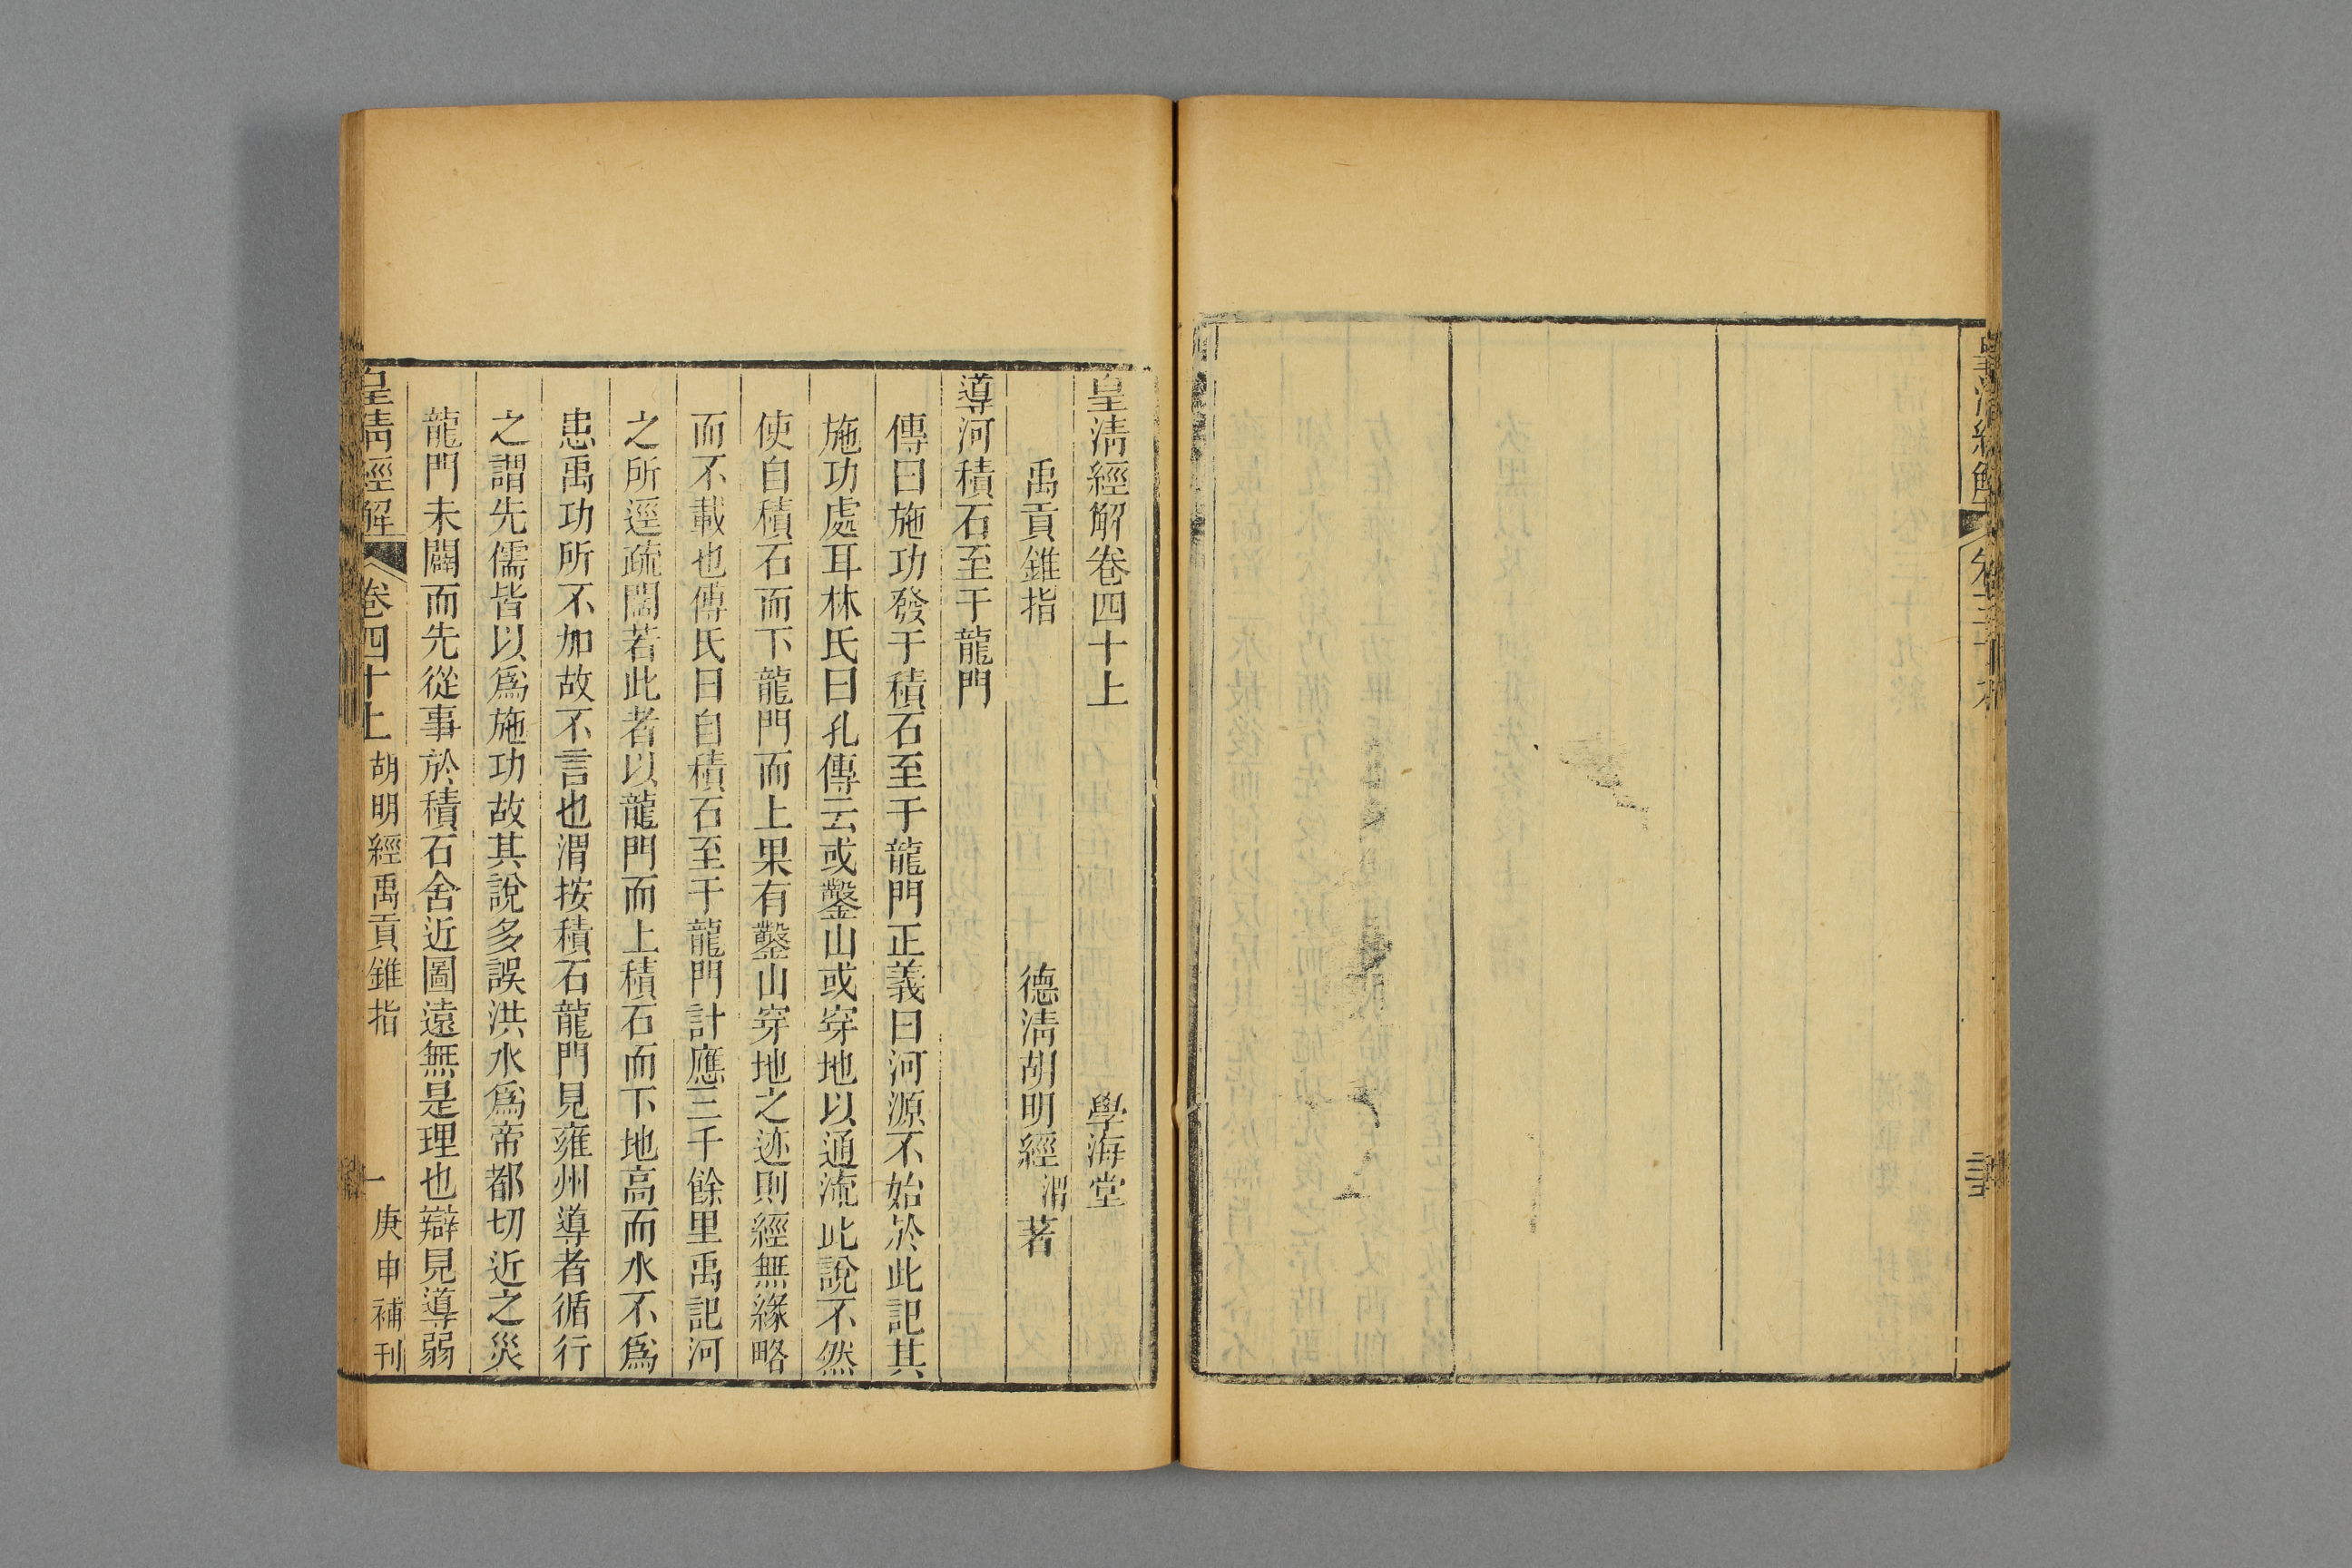 皇清經解
皇清經解卷四十上 學海堂
禹貢錐指 德清胡明經渭著
導河積石至于龍門
傳曰施功發于積石至于龍門正義曰河源不始於此記其
施功處耳林氏曰孔傳云或鑿山或穿地以通流此說不然
使自積石而下龍門而上果有鑿山穿地之迹則經無緣略
而不載也傅氏曰自積石至于龍門計應三千餘里禹記河
之所逕疏闊若此者以龍門而上積石而下地高而水不爲
患禹功所不加故不言也渭按積石龍門見雍州導者循行
之謂先儒皆以爲施功故其說多誤洪水爲帝都切近之災
龍門未闢而先從事於積石舍近圖遠無是理也辯見導弱
皇清經解 卷四十上 胡明經禹貢錐指 一 庚申補刊